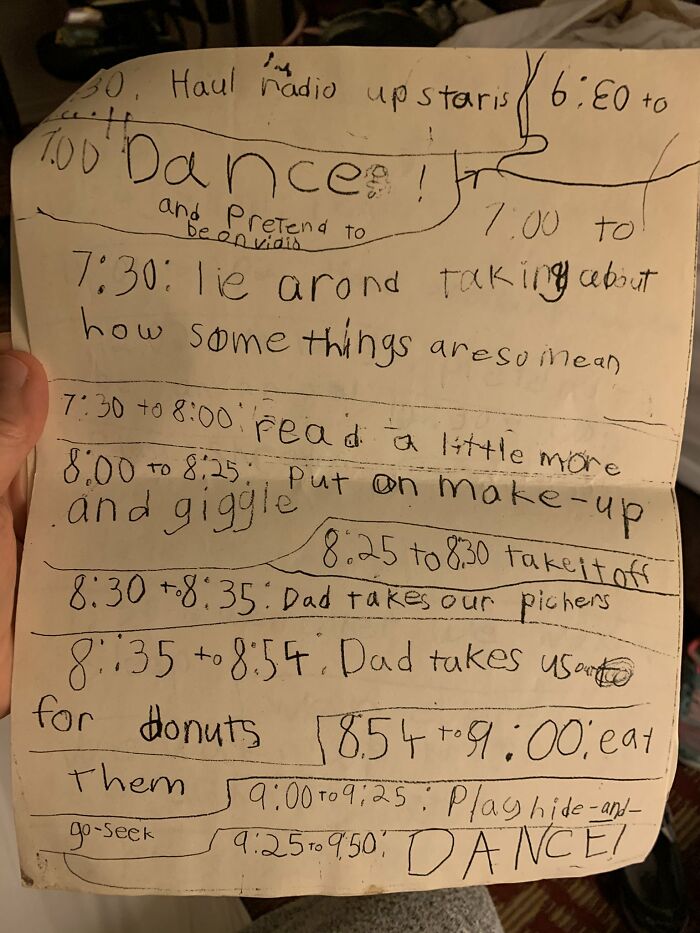 :30. Haul radio upstaris
6:30 to
7:00 Dance !
and PreTend to
be on
7:00 to
7:30: lie arond taking about
how some things are so mean
7:30 to 8:00: read a little more
8:00 to 8:25: put on make-up
and giggle
8:25 to 8:30 take it off
8:30 to 8:35: Dad takes our pichers
8:35 to 8:54: Dad takes us out
for donuts
8:54 to 9:00: eat
Them
9:00 to 9:25: Play hide-and-
go-seek
9:25 to 9:50: DANCE!